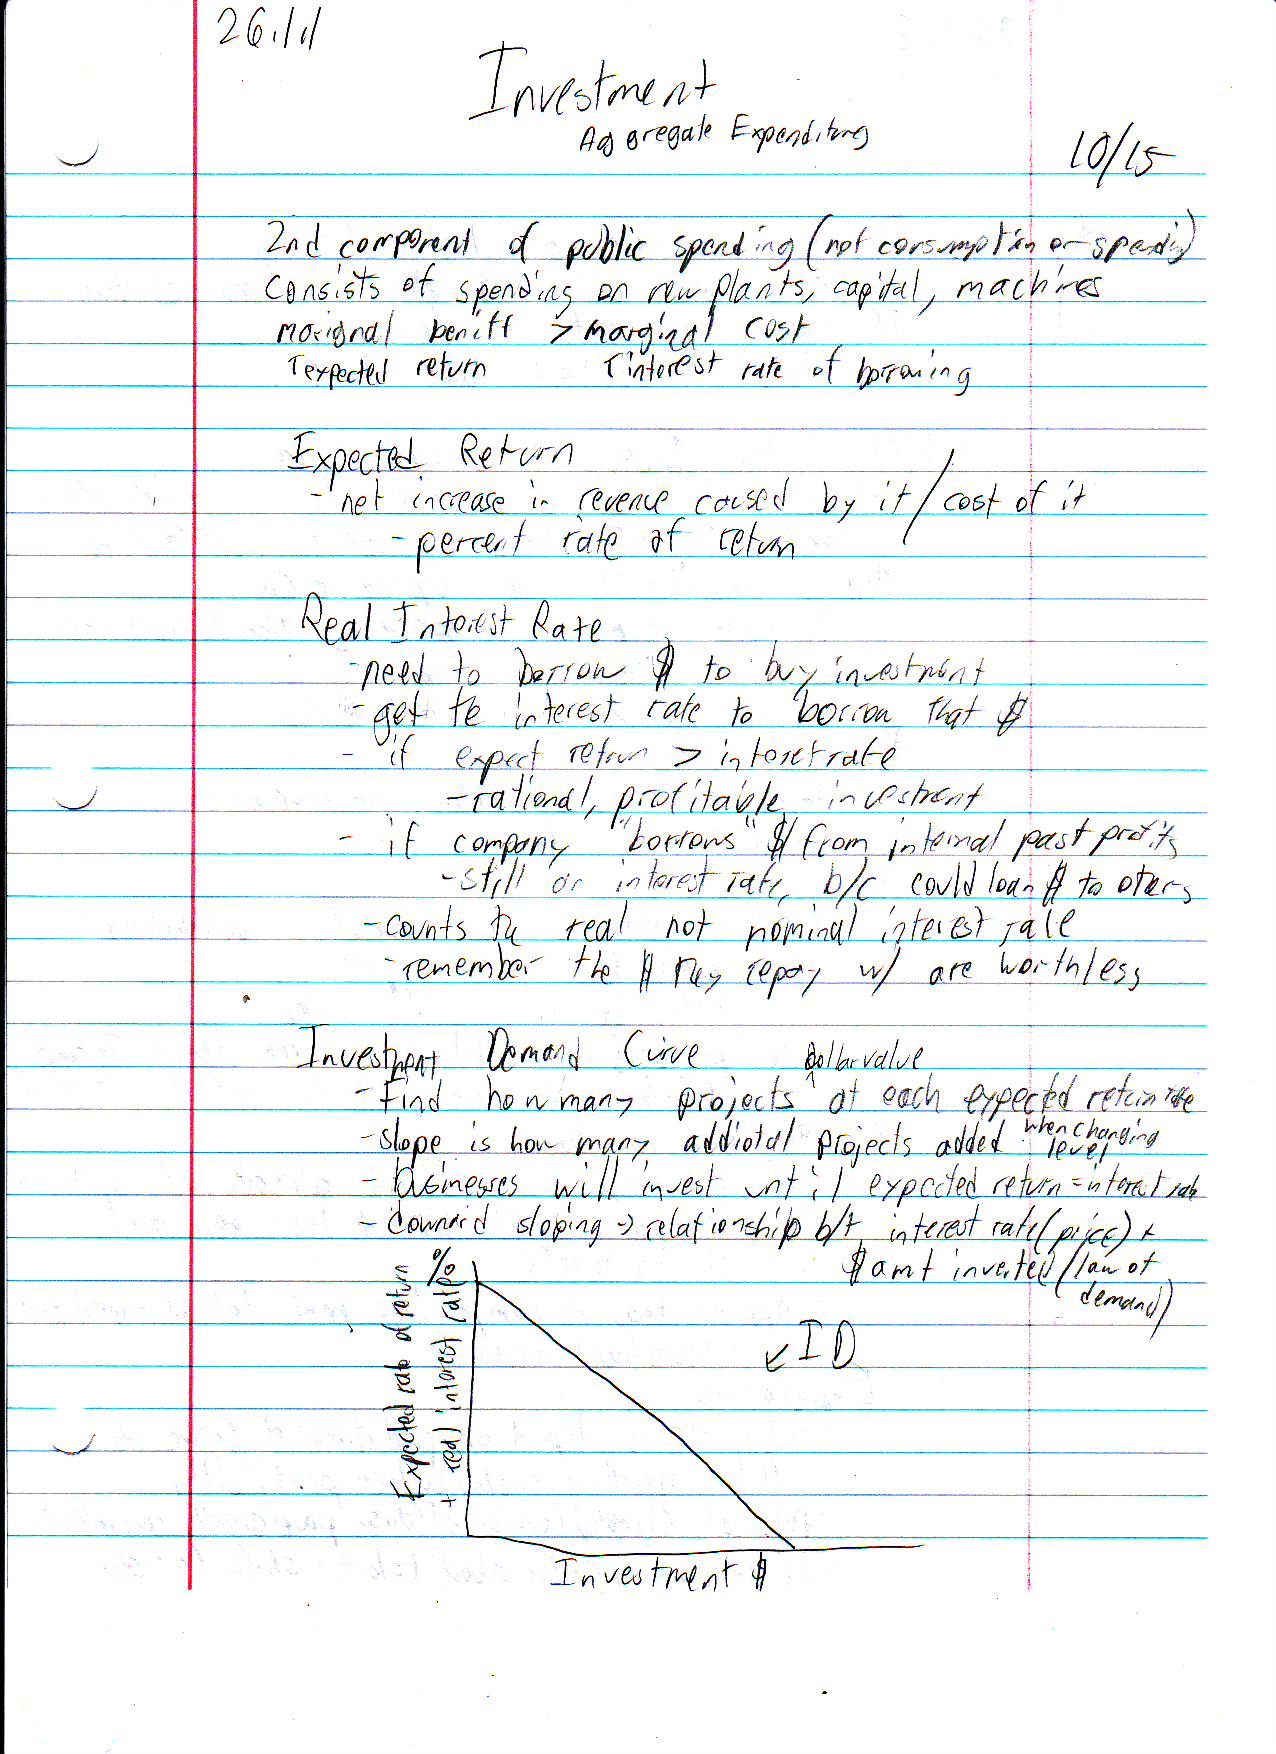 26.1.1
Investment
Aggregate Expenditures
10/15
2nd component of public spending (not consumption or spending)
consists of spending on new plants, capital, machines
marignal benift > marginal cost
↑expected return ↑interest rate of borrowing
Expected Return
- net increase in revenue caused by it / cost of it
- percent rate of return
Real Interest Rate
- need to borrow $ to buy investment
- get the interest rate to borrow that $
- if expect return > interest rate
- rational, profitable investment
- if company "borrows" $ from internal past profits
- still an interest rate, b/c could loan $ to others
- counts the real not nominal interest rate
- remember the $ they repay w/ are worthless
Investment Demand Curve
dollar value
- Find how many projects ^ at each expected return rate
- slope is how many addiotal projects added when changing level
- businesses will invest until expected return = interest rate
- downard sloping → relationship b/t interest rate (price) +
$ amt invested (law of
demand)
%
Expected rate of return
+ real interest rate
↙ ID
Investment $